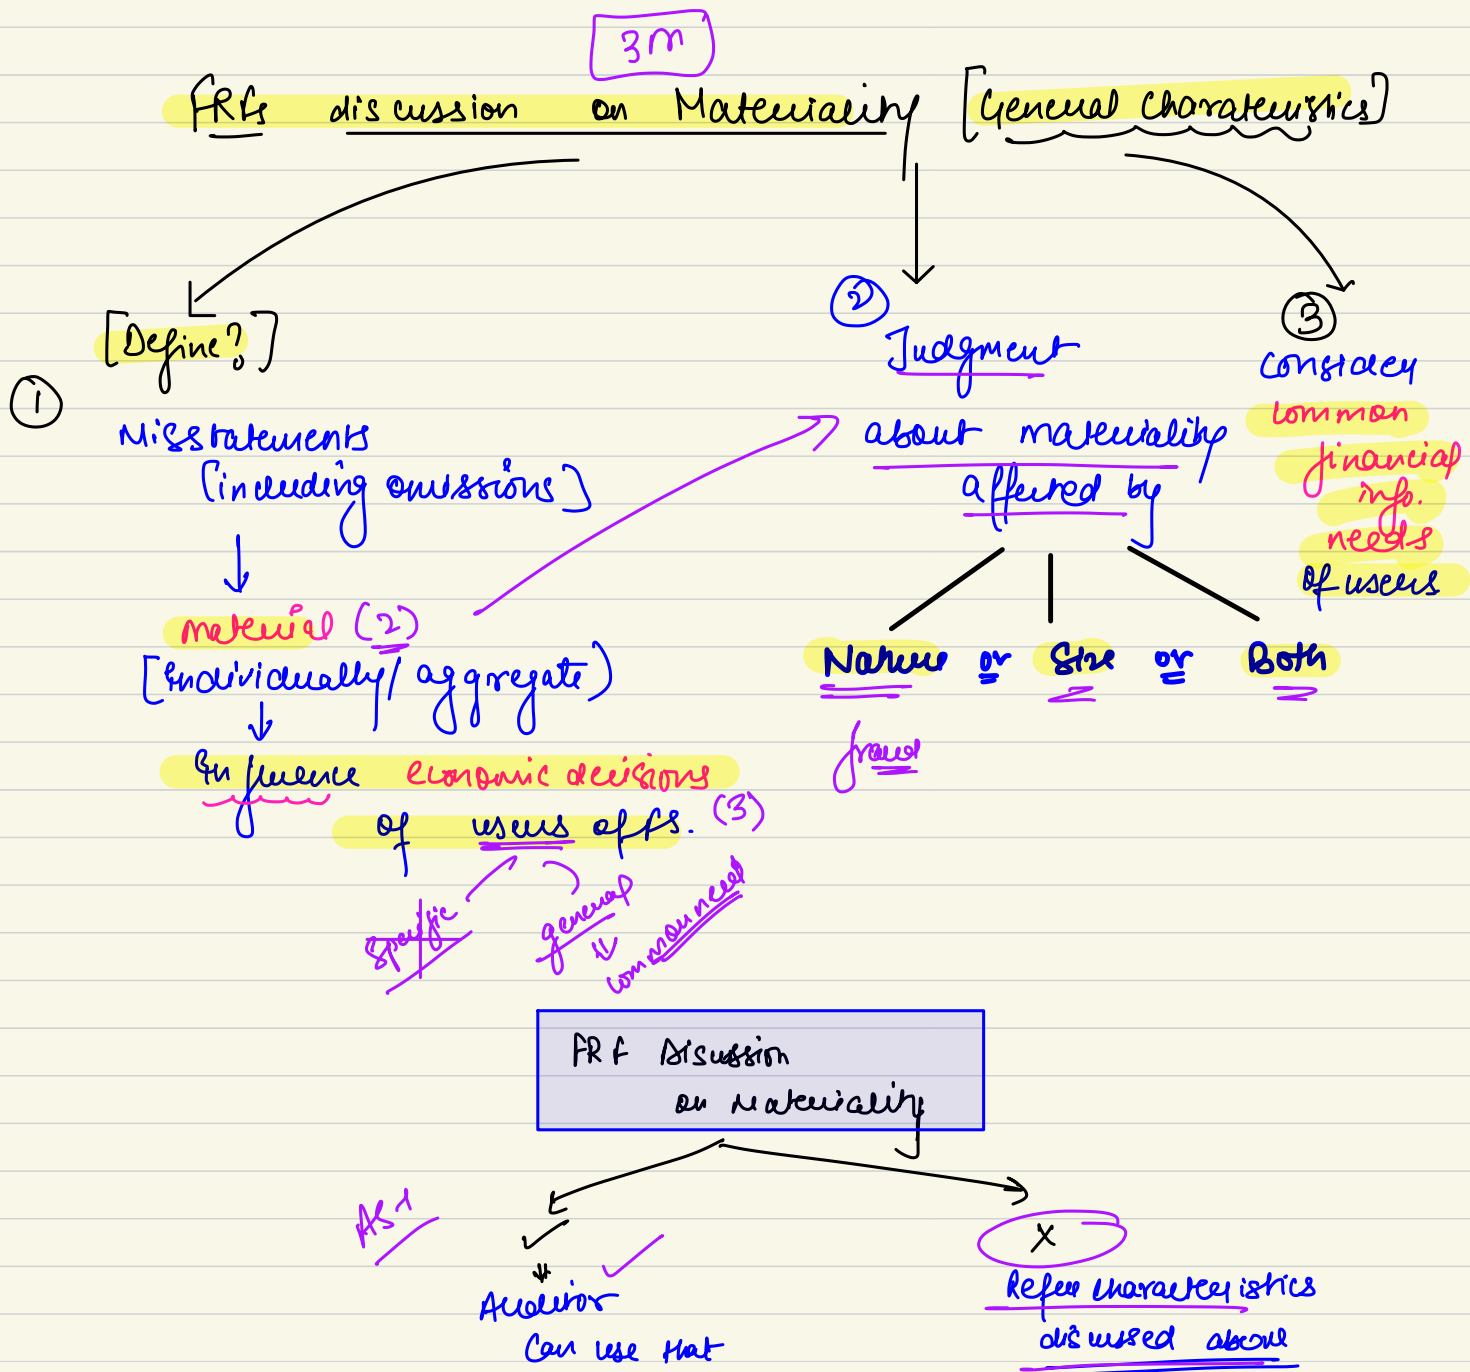 3M
FRFs discussion on Materiality [General Charateristics]
[Define?]
①
Misstatements
[including omissions]
material (2)
[Individually/aggregate]
Influence economic decisions
of users of fs. (3)
specific
general
common need
②
Judgment
about materiality
affected by
Nature or Size or Both
fraud
③
Consider
common
financial
info.
needs
of users
FRF Disussion
on Materiality
AS1
Auditor
Can use that
X
Refer characteristics
disussed above